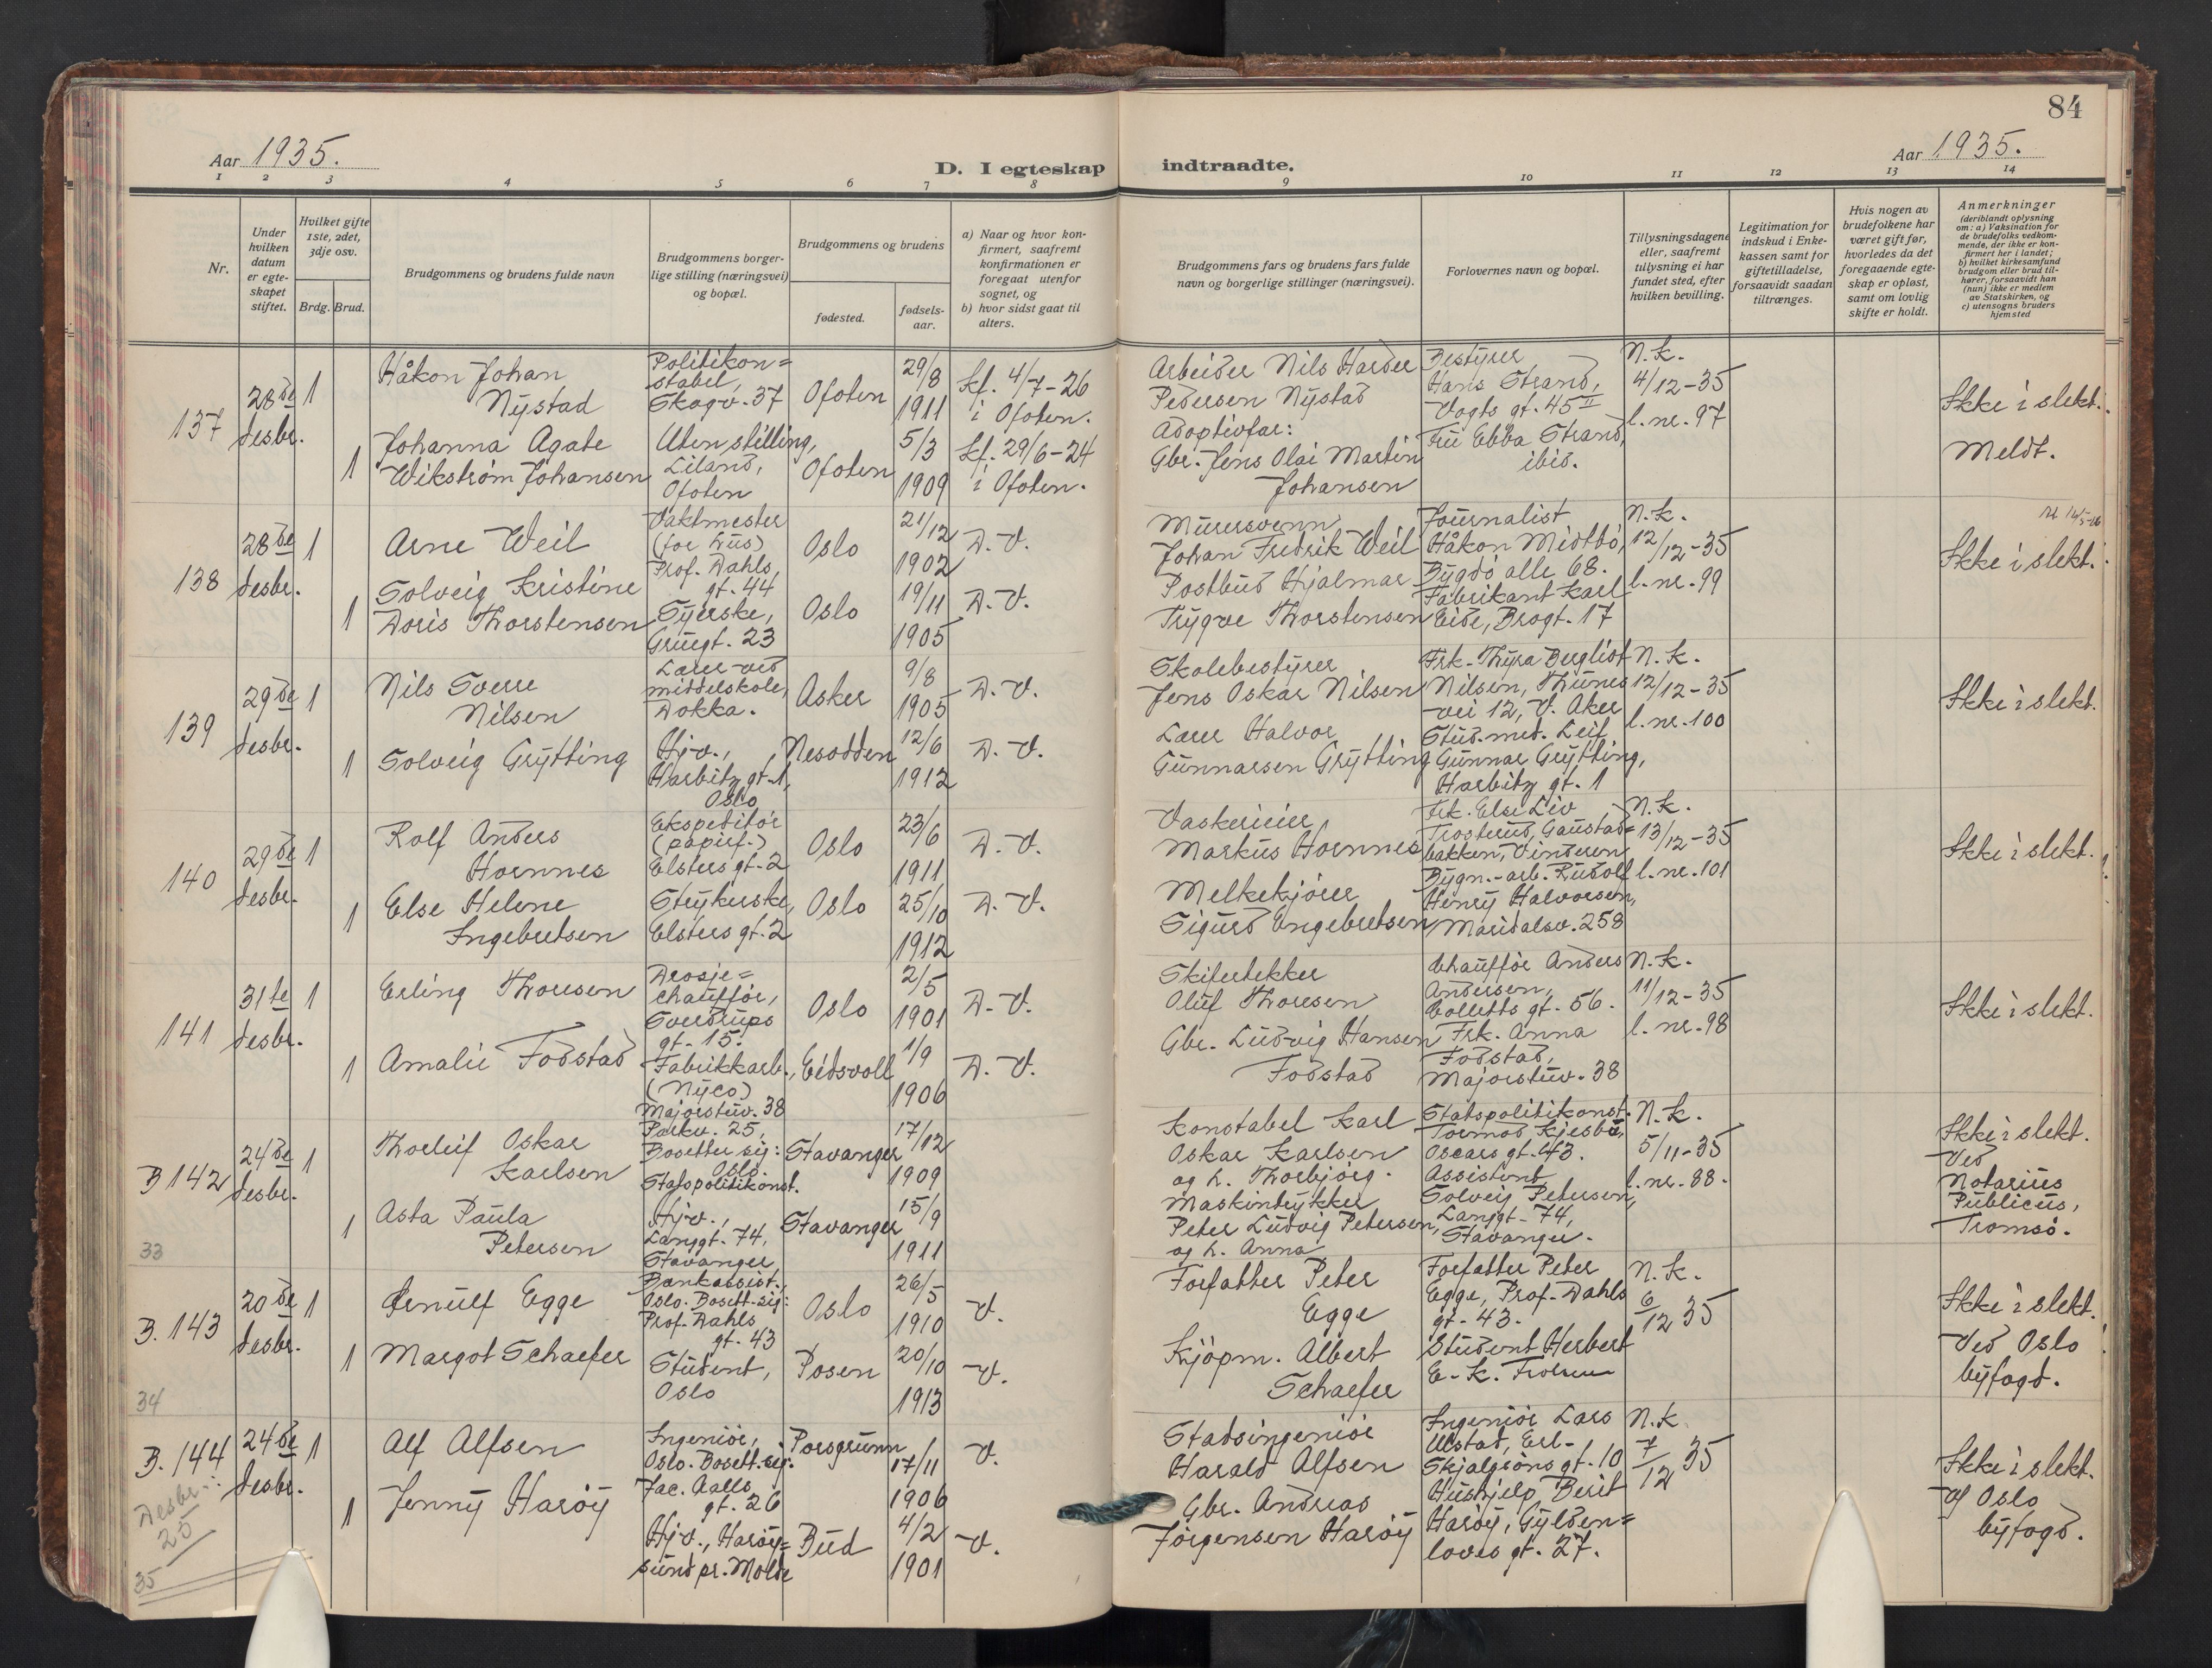 84
Aar 1935.
D. I egteskap indtraadte.
Aar 1935.
1 2 3 4 5 6 7 8 9 10 11 12 13 14
Nr.
Under
hvilken
datum
er egte-
skapet
stiftet.
Hvilket gifte
1ste, 2det,
3dje osv.
Brdg. Brud.
Brudgommens og brudens fulde navn
Brudgommens borger-
lige stilling (næringsvei)
og bopæl.
Brudgommens og brudens
fødested.
fødsels-
aar.
a) Naar og hvor kon-
firmert, saafremt
konfirmationen er
foregaat utenfor
sognet, og
b) hvor sidst gaat til
alters.
Brudgommens fars og brudens fars fulde
navn og borgerlige stillinger (næringsvei).
Forlovernes navn og bopæl.
Tillysningsdagene
eller, saafremt
tillysning ei har
fundet sted, efter
hvilken bevilling.
Legitimation for
indskud i Enke-
kassen samt for
giftetilladelse,
forsaavidt saadan
tiltrænges.
Hvis nogen av
brudefolkene har
været gift før,
hvorledes da det
foregaaende egte-
skap er opløst,
samt om lovlig
skifte er holdt.
Anmerkninger
(deriblandt oplysning
om: a) Vaksination for
de brudefolks vedkom-
mende, der ikke er kon-
firmert her i landet;
b) hvilket kirkesamfund
brudgom eller brud til-
hører, forsaavidt han
(hun) ikke er medlem
av Statskirken, og
c) utensogns bruders
hjemsted
137
28de
desbr.
1
Håkon Johan
Nystad
Politikon=
stabel,
Skogv. 37
Ofoten
29/8
1911
kf. 4/7-26
i Ofoten.
Arbeider Nils Harder
Pedersen Nystad
Bestyrer
Hans Strand,
Vogts gt. 45 II
N.k.
4/12-35
l.nr. 97
Ikke i slekt.
1
Johanna Agate
Wikstrøm Johansen
Uten stilling,
Liland,
Ofoten
Ofoten
5/3
1909
kf. 29/6-24
i Ofoten.
Adoptivfar:
Gbr. Jens Olai Martin
Johansen
Fru Ebba Strand,
ibid.
Meldt.
138
28de
desbr.
1
Arne Weil
Vaktmester
(for hus)
Prof. Dahls
gt. 44
Oslo
21/12
1902
D.V.
Murersvenn
Johan Fredrik Weil
Journalist
Håkon Midtbö,
Bygdö alle 68.
N.k.
12/12-35
l.nr. 99
Ikke i slekt.
1
Solveig Kristine
Doris Thorstensen
Syerske,
Gruegt. 23
Oslo
19/11
1905
D.V.
Postbud Hjalmar
Trygve Thorstensen
Fabrikant Karl
Eide, Brogt. 17
139
29de
desbr.
1
Nils Sverre
Nilsen
Lærer ved
middelskole,
Dokka.
Asker
9/8
1905
D.V.
Skolebestyrer
Jens Oskar Nilsen
Frk. Thyra Bergliot
Nilsen, Thunes
vei 12, V. Aker
N.k.
12/12-35
l.nr. 100
Ikke i slekt.
1
Solveig Grytting
Hjv.,
Harbitz gt. 1,
Oslo
Nesodden
12/6
1912
D.V.
Lærer Halvor
Gunnarsen Grytting
Stud. med. Leif
Gunnar Grytting,
Harbitz gt. 1
140
29de
desbr.
1
Rolf Anders
Hornnes
Ekspeditör
(papirf.)
Elsters gt. 2
Oslo
23/6
1911
D.V.
Vaskerieier
Markus Hornnes
Frk. Else Liv
Trosterud, Gaustad=
bakken, Vinderen
N.k.
13/12-35
l.nr. 101
Ikke i slekt.
1
Else Helene
Ingebretsen
Strykerske,
Elsters gt. 2
Oslo
25/10
1912
D.V.
Melkekjörer
Sigurd Engebretsen
Bygn.-arb. Rudolf
Henry Halvorsen,
Maridalsv. 258
141
31te
desbr.
1
Erling Thoresen
Drosje=
chauffør,
Sverdrups
gt. 15.
Oslo
2/5
1901
D.V.
Skifertekker
Oluf Thoresen
Chauffør Anders
Andersen,
Colletts gt. 56.
N.k.
11/12-35
l.nr. 98
Ikke i slekt.
1
Amalie Fodstad
Fabrikkarb.,
(Nyco)
Majorstuv. 38
Eidsvoll
1/9
1906
D.V.
Gbr. Ludvig Hansen
Fodstad
Frk. Anna
Fodstad,
Majorstuv. 38
B 142
24de
desbr.
1
Thorleif Oskar
Karlsen
Parkv. 25,
Bosetter sig:
Oslo.
Statspolitikonst.
Stavanger
17/12
1909
Konstabel Karl
Oskar Karlsen
og h. Thorbjörg.
Statspolitikonst.
Tormod Kjesbu,
Oscars gt. 43.
N.k.
5/11-35
l.nr. 88.
Ikke i slekt.
Ved
Notarius
Publicus,
Tromsö.
1
Asta Paula
Petersen
Hjv.,
Langgt. 74,
Stavanger
Stavanger
15/9
1911
Maskintrykker
Peter Ludvig Petersen,
og h. Anna
Assistent
Solveig Petersen,
Langgt. 74,
Stavanger.
33
B. 143
20de
desbr.
1
Arnulf Egge
Bankassist.,
Oslo. Bosett. sig:
Prof. Dahls
gt. 43
Oslo
26/5
1910
V.
Forfatter Peter
Egge
Forfatter Peter
Egge, Prof. Dahls
gt. 43.
N.k.
6/12 35
Ikke i slekt.
Ved Oslo
byfogd.
1
Margot Schaefer
Student,
Oslo
Posen
20/10
1913
V.
Kjöpm. Albert
Schaefer
Student Herbert
E. K.
34
B. 144
24de
desbr.
1
Alf Alfsen
Ingeniör,
Oslo. Bosett. sig:
Jac. Aalls
gt. 26
Porsgrunn
17/11
1906
V.
Stadsingeniör
Harald Alfsen
Ingeniör Lars
Ulstad, Erl.
Skjalgsöns gt. 10
N.k.
7/12 35
Ikke i slekt.
Af Oslo
byfogd.
1
Jenny Haröy
Hjv., Haröy=
sund pr. Molde
Bud
4/2
1901
V.
Gbr. Andreas
Jörgensen Haröy
Hushjelp Berit
Haröy, Gylden=
löves gt. 27.
Desbr.:
25
35